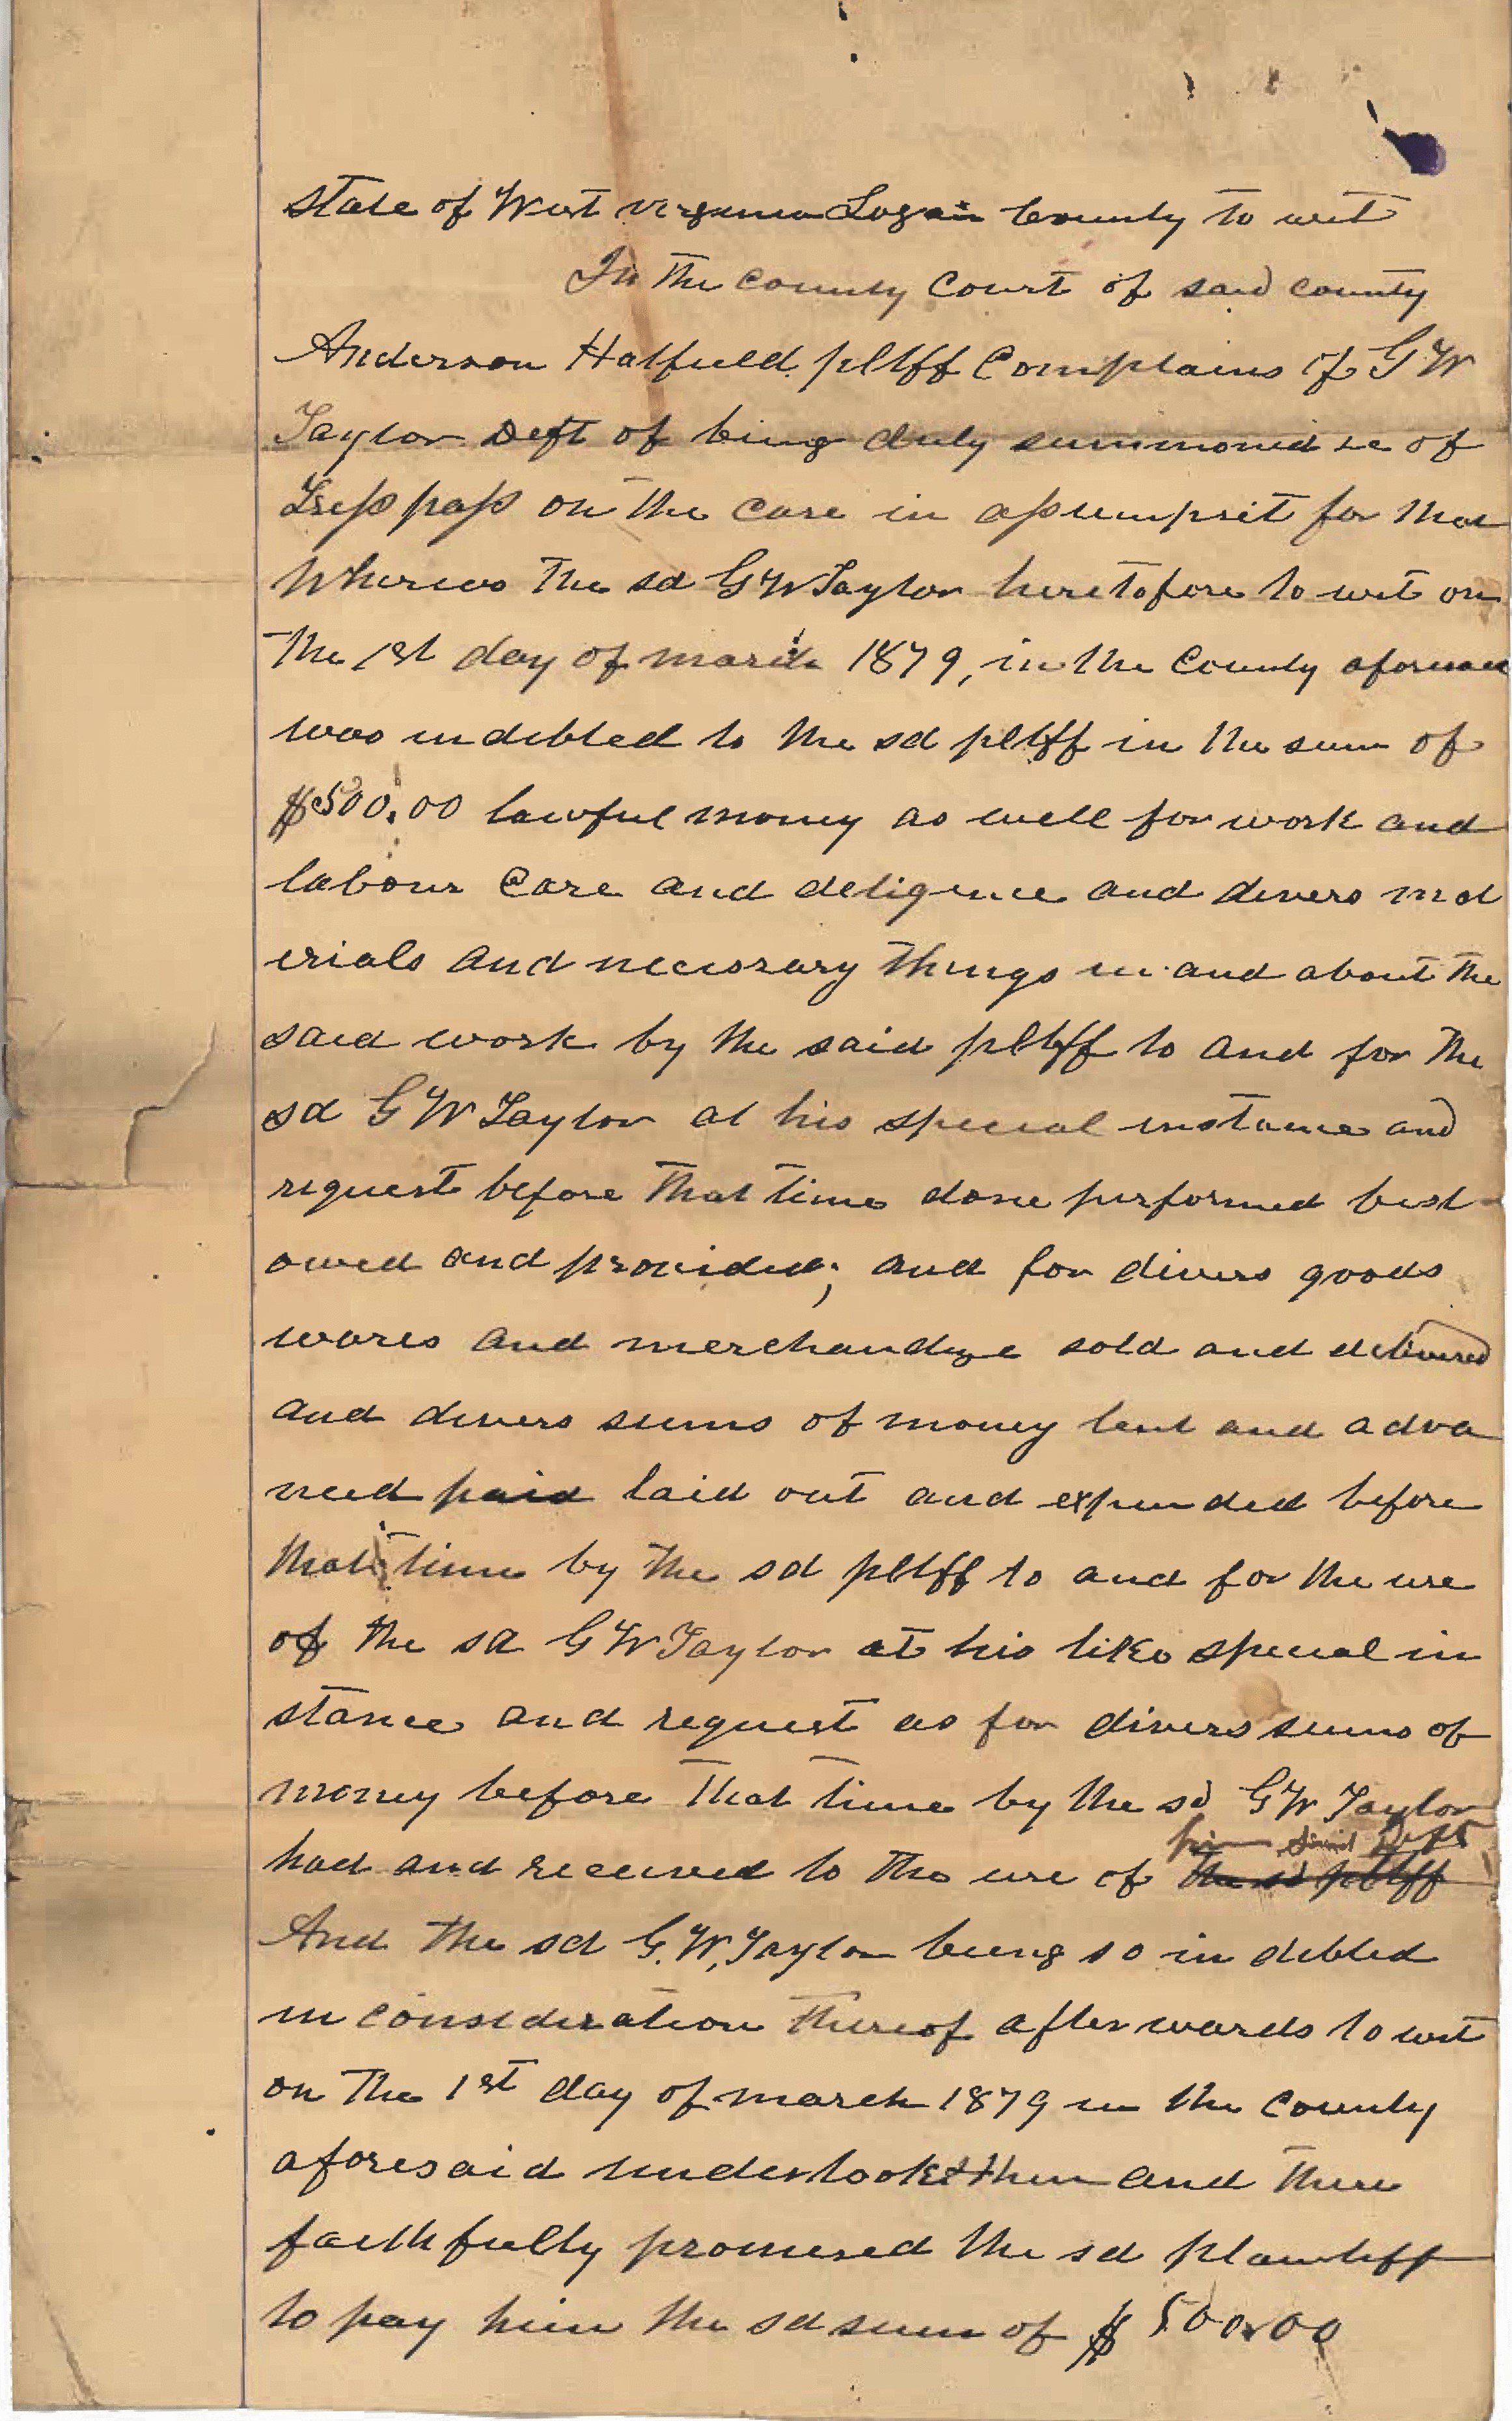 State of West Virginia Logan County to wit
In the County Court of said county
Anderson Hatfield pltff Complains of G W
Taylor Deft of being duly summoned &c of
Tresspass on the case in assumpsit for that
Whereas The sd G W Taylor heretofore to wit on
The 1st day of March 1879, in the County aforesaid
was indebted to the sd pltff in the sum of
$500.00 lawful money as well for work and
labour Care and deligence and divers mat
erials and necessary things in and about the
said work by the said pltff to and for the
sd G W Taylor at his special instance and
request before that time done performed best
owed and provided; and for divers goods
wares and merchandize sold and delivered
and divers sums of money lent and adva
nced paid laid out and expended before
that time by the sd pltff to and for the use
of the sd G W Taylor at his like special in
stance and request as for divers sums of
money before that time by the sd G W Taylor
him said Deft
had and received to the use of the sd pltff
And the sd G. W. Taylor being so in debted
in consideration thereof afterwards to wit
on The 1st day of march 1879 in the County
aforesaid undertook & then and there
faithfully promised the sd plantiff
to pay him the sd sum of $500.00